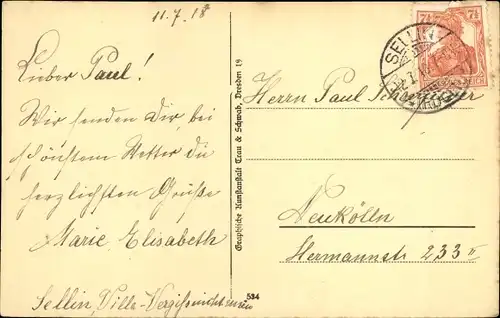 11.7.18
Lieber Paul!
Wir senden Dir, bei
schönstem Wetter die
herzlichsten Grüße
Marie, Elisabeth
Sellin, Villa-Vergissmeinnicht
Graphische Kunstanstalt Trau & Schwab, Dresden 19
534
7½ 7½
SELLIN
Herrn Paul
Neukölln
Hermannstr 233 II